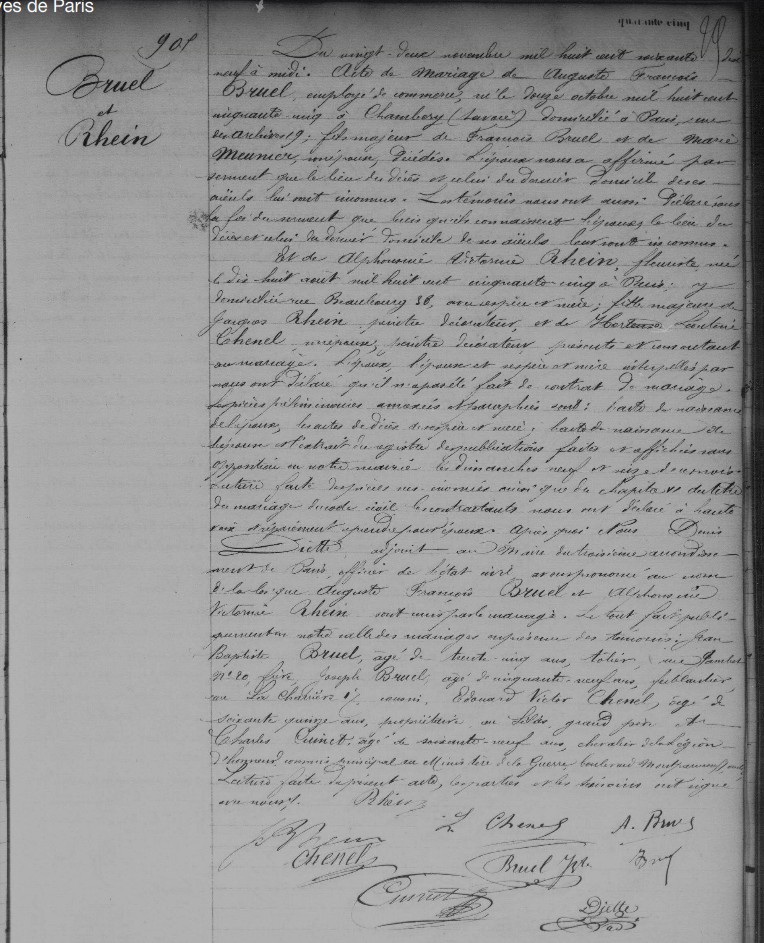 ves de Paris
quarante cinq
901
Bruel
et
Rhein
Du vingt-deux novembre mil huit cent soixante
neuf à midi. Acte de Mariage de Auguste François
Bruel, employé de commerce, né le douze octobre mil huit cent
cinquante cinq à Chambéry (Savoie) domicilié à Paris, rue
des archives 19; fils majeur de François Bruel et de Marie
Meunier, son épouse, Décédés. L'époux nous a affirmé par
serment que le lieu des décès et celui du dernier domicile de ses
aïeuls lui sont inconnus. Les témoins nous ont aussi Déclaré sous
la foi du serment que bien qu'ils connaissent l'époux, le lieu du
décès et celui du dernier domicile de ses aïeuls leur sont inconnus.
Et de Alphonsine Victorine Rhein, fleuriste, née
le dix huit août mil huit cent cinquante cinq à Paris, y
domiciliée rue Beaubourg 38, avec ses père et mère; fille majeure de
Jacques Rhein peintre décorateur, et de Hortense
Chenel son épouse, peintre décorateur, présents et consentant
au mariage. L'époux, l'épouse et ses père et mère interpellés par
nous ont Déclaré qu'il n'a pas été fait de contrat de mariage.
Les pièces préliminaires annexées et paraphées sont: l'acte de naissance
de l'époux, les actes de décès de ses père et mère, l'acte de naissance de
l'épouse et l'extrait du registre des publications faites et affichées sans
opposition en notre mairie les dimanches neuf et seize de ce mois.
Lecture faite des pièces ainsi que du chapitre VI du titre
du mariage du code civil les contractants nous ont déclaré à haute
voix se prendre pour époux. Après quoi Nous Denis
Diette, adjoint au Maire du troisième arrondisse-
ment de Paris, officier de l'état civil, avons prononcé au nom
de la loi que Auguste François Bruel et Alphonsine
Victorine Rhein sont unis par le mariage. Le tout fait publi-
quement en notre salle des mariages en présence des témoins: Jean
Baptiste Bruel, âgé de trente cinq ans, tôlier, rue
N° 20, frère, Joseph Bruel, âgé de cinquante neuf ans, ferblantier,
rue 17, cousin, Edouard Victor Chenel, âgé de
soixante quinze ans, propriétaire, au grand père et
Charles Cuinet, âgé de soixante-neuf ans, chevalier de la Légion
d'honneur, commis principal au Ministère de la Guerre, boulevard
Lecture faite du présent acte, les parties et les témoins ont signé
avec nous. Rhein
Chenel A. Bruel
Chenel Bruel
Cuinet
Diette